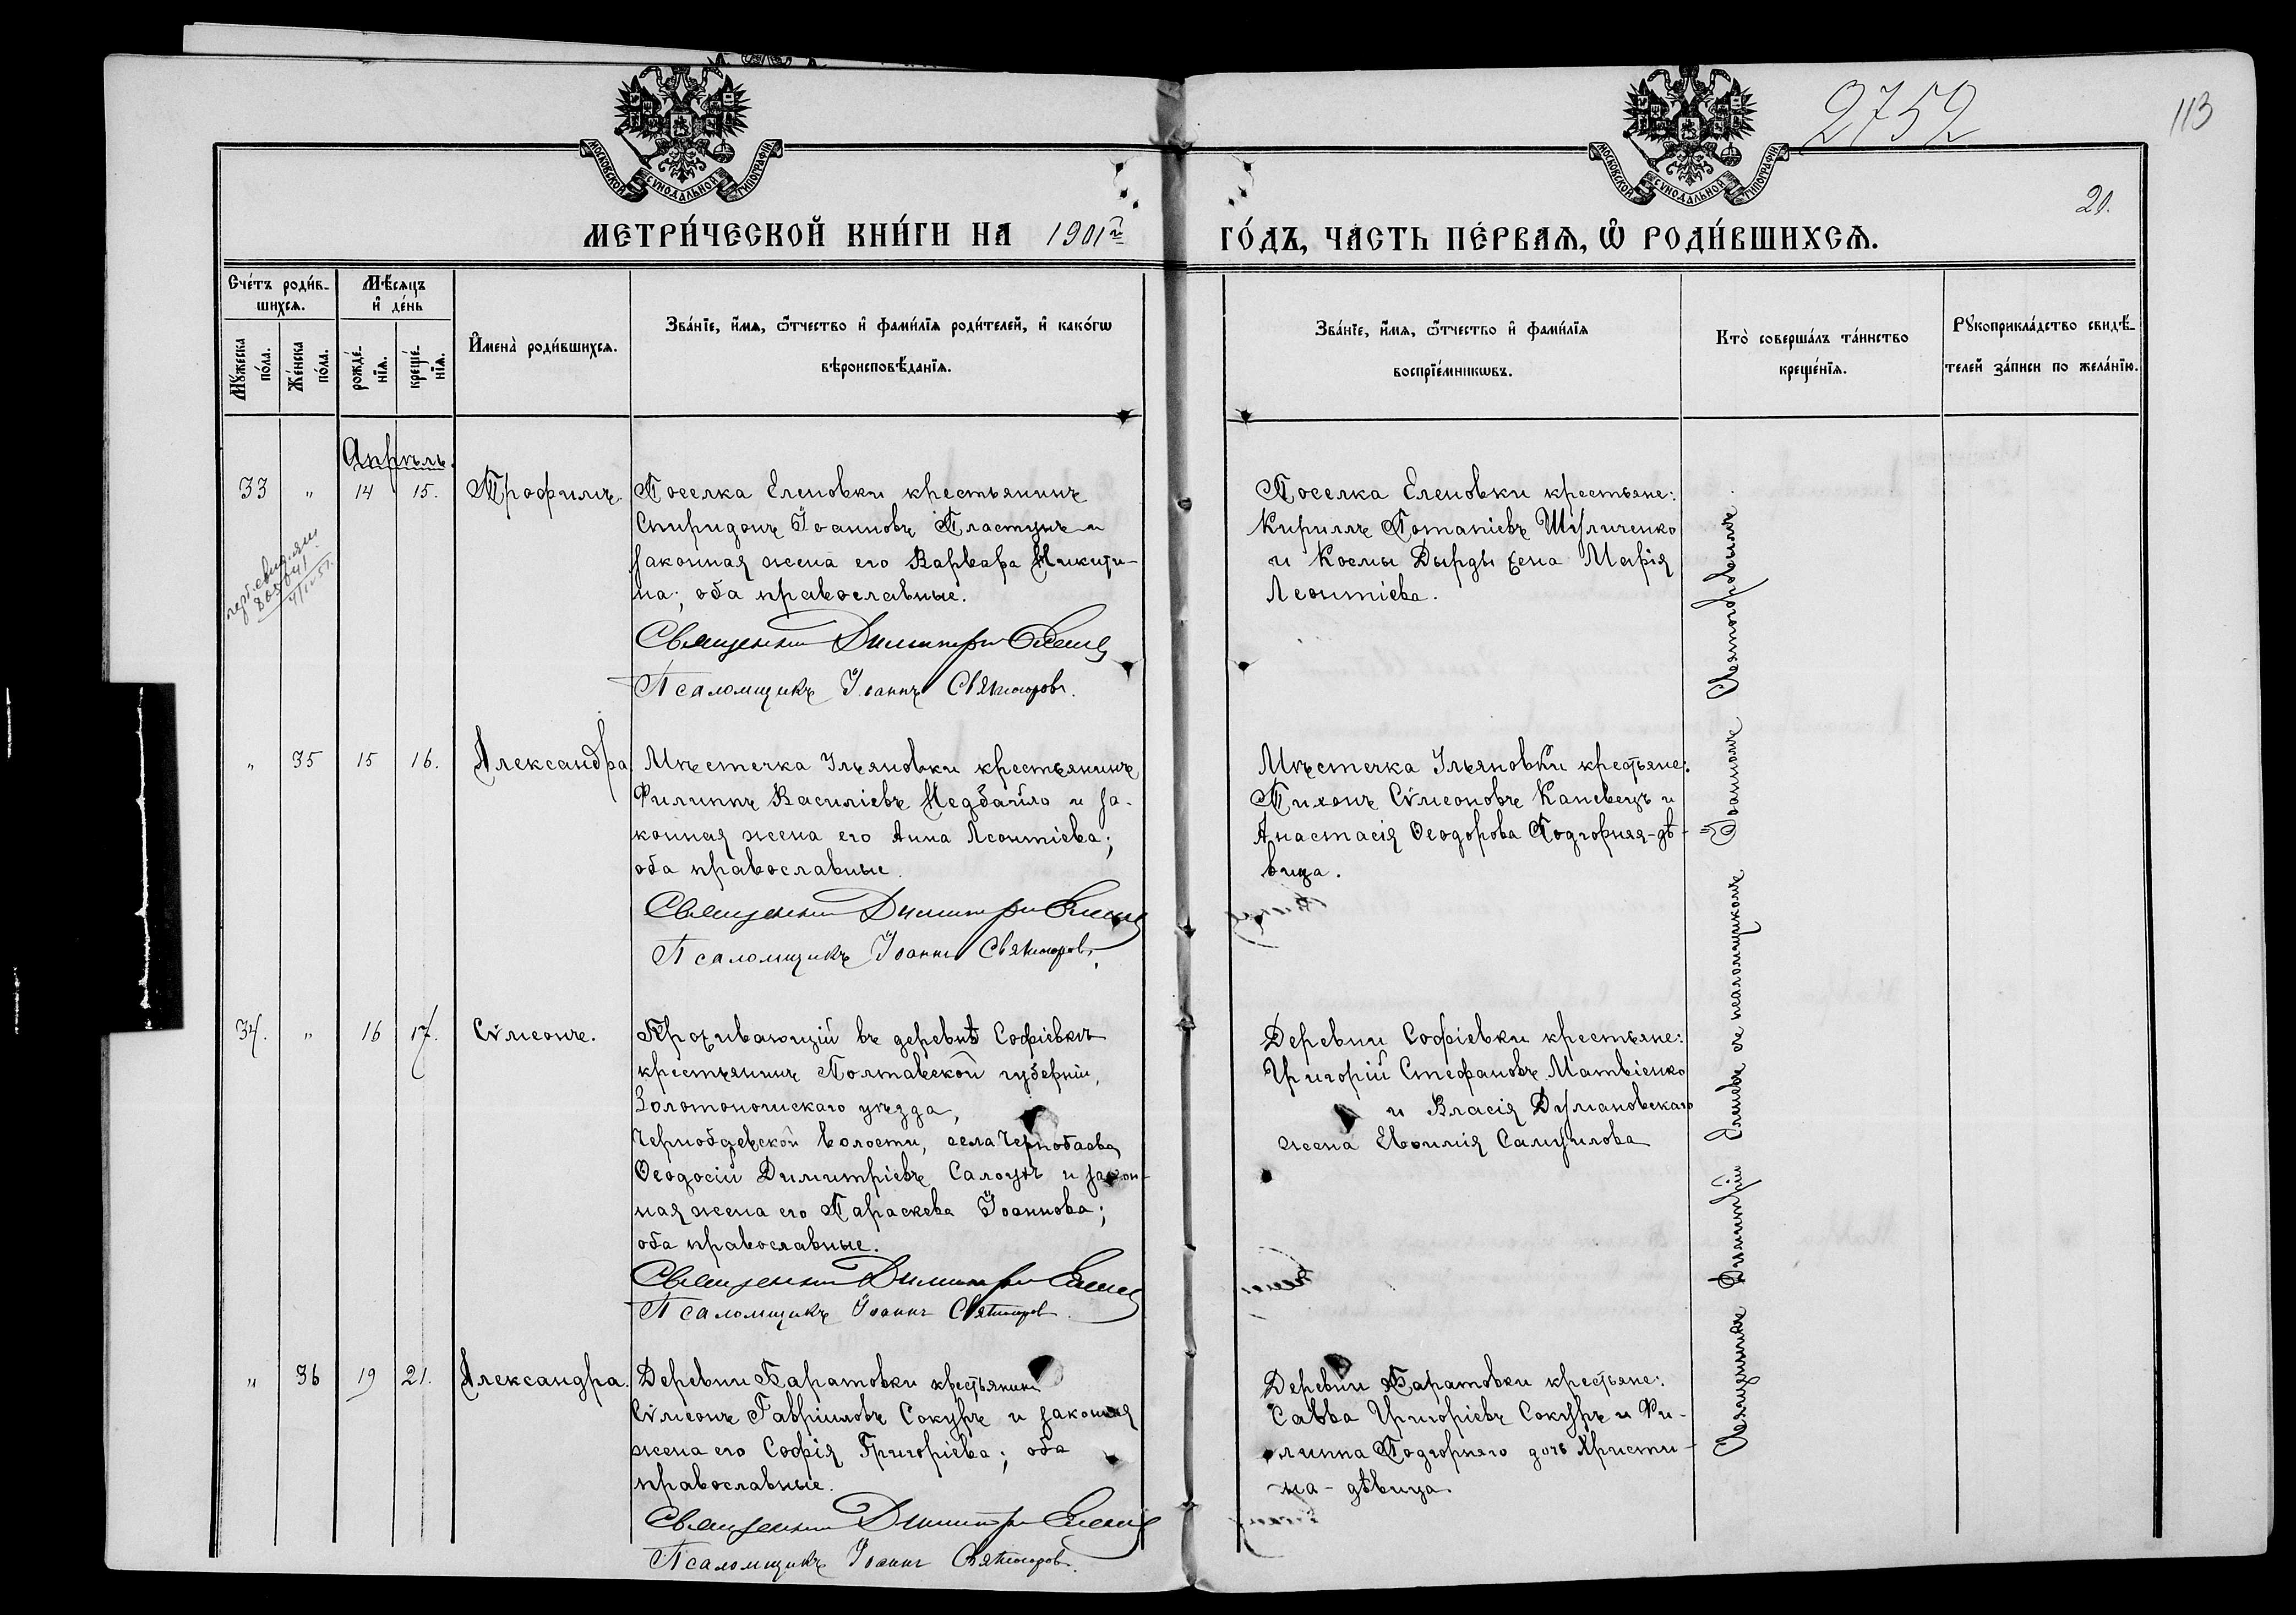 МОСКОВСКОЙ СѴНОДАЛЬНОЙ ТИПОГРАФІИ
МОСКОВСКОЙ СѴНОДАЛЬНОЙ ТИПОГРАФІИ
2752
113
20.
МЕТРИ́ЧЕСКОЙ КНИ́ГИ НА 1901 г҃
ГО́ДЪ, ЧА́СТЬ ПЕ́РВАѦ, Ѡ҆ РОДИ́ВШИХСѦ.
Сче́тъ роди́в-
шихсѧ.
Мѣ́сѧцъ
и҆ де́нь
Мꙋ́жеска
по́ла.
Же́нска
по́ла.
рожде́-
нїѧ.
креще́-
нїѧ.
И҆мена̀ роди́вшихсѧ.
Зва́нїе, и҆́мѧ, ѻ҆́тчество и҆ фами́лїѧ роди́телей, и҆ како́гѡ
вѣроисповѣ́данїѧ.
Зва́нїе, и҆́мѧ, ѻ҆́тчество и҆ фами́лїѧ
воспрїе́мникѡвъ.
Кто̀ соверша́лъ та́инство
креще́нїѧ.
Рꙋкоприкла́дство свидѣ́-
телей за́писи по жела́нїю.
Апрѣль.
33 " 14 15. Трофимъ.
Поселка Еленовки крестьянинъ
Спиридонъ Іоанновъ Пластунъ и
законная жена его Варвара Никити-
на; оба православные.
Священникъ Димитрій
Псаломщикъ Іоаннъ Святогоровъ.
Поселка Еленовки крестьяне:
Кириллъ Потапіевъ Шуличенко
и Космы Дырды жена Марія
Леонтіева.
" 35 15 16. Александра
Мѣстечка Ильяновки крестьянинъ
Филиппъ Василіевъ Недбайло и за-
конная жена его Анна Леонтіева;
оба православные.
Священникъ Димитрій
Псаломщикъ Іоаннъ Святогоровъ.
Мѣстечка Ильяновки крестьяне:
Тихонъ Сѵмеоновъ Каневецъ и
Анастасія Ѳеодорова Подгорняя-дѣ-
вица.
34. " 16 17. Сѵмеонъ.
Проживающій въ деревнѣ Софіевкѣ
крестьянинъ Полтавской губерніи,
Золотоношскаго уѣзда,
Чернобаевской волости, села Чернобаева
Ѳеодосій Димитріевъ Салоупъ и закон-
ная жена его Параскева Іоаннова;
оба православные.
Священникъ Димитрій
Псаломщикъ Іоаннъ Святогоровъ.
Деревни Софіевки крестьяне:
Григорій Стефановъ Матвіенко
и Власія Думановскаго
жена Евѳимія Самуилова
" 36 19 21. Александра.
Деревни Баратовки крестьянинъ
Сѵмеонъ Гавріиловъ Сокуръ и законная
жена его Софія Григоріева; оба
православные.
Священникъ Димитрій
Псаломщикъ Іоаннъ Святогоровъ.
Деревни Баратовки крестьяне:
Савва Григоріевъ Сокуръ и Фи-
липпа Подгорняго дочь Христи-
на - дѣвица.
Священникъ Димитрій съ псаломщикомъ Іоанномъ Святогоровымъ.